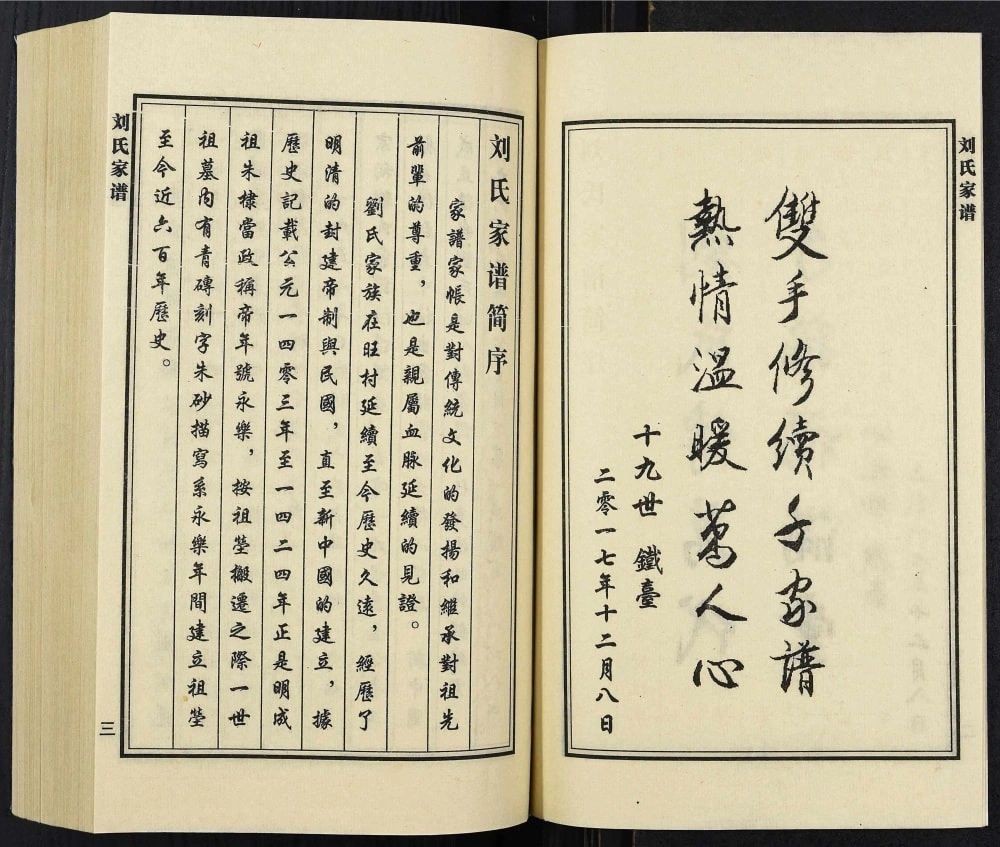 刘氏家谱
雙手修續千家譜
熱情溫暖萬人心
十九世 鐵臺
二零一七年十二月八日
刘氏家谱简序
家譜家帳是對傳統文化的發揚和繼承對祖先
前輩的尊重，也是親屬血脉延續的見證。
劉氏家族在旺村延續至今歷史久遠，經歷了
明清的封建帝制與民國，直至新中國的建立，據
歷史記載公元一四零三年至一四二四年正是明成
祖朱棣當政稱帝年號永樂，按祖塋搬遷之際一世
祖墓内有青磚刻字朱砂描寫系永樂年間建立祖塋
至今近六百年歷史。
刘氏家谱
三